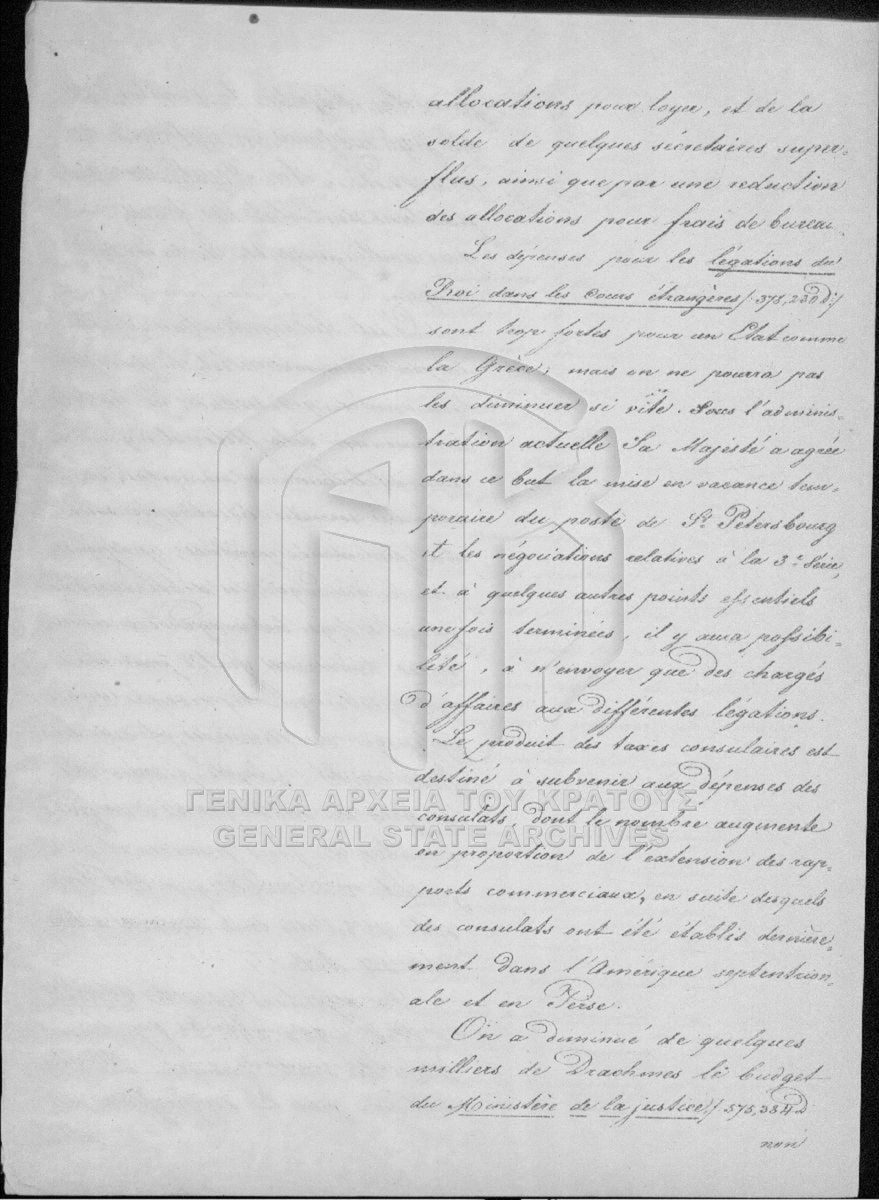 allocations pour loyer, et de la
solde de quelques sécretaires super-
flus, ainsi que par une reduction
des allocations pour frais de bureau.
Les dépenses pour les légations du
Roi dans les Cours étrangères /: 378,230 d :/
sont trop fortes pour un Etat comme
la Grèce; mais on ne pourra pas
les diminuer si vîte. Sous l'adminis-
tration actuelle Sa Majésté a agrée
dans ce but la mise en vacance tem-
poraire du poste de St. Pétersbourg
et les négociations relatives à la 3e Série,
et à quelques autres points essentiels
une fois terminées, il y aura possibi-
lité, à n'envoyer que des chargés
d'affaires aux différentes légations.
Le produit des taxes consulaires est
destiné à subvenir aux dépenses des
consulats, dont le nombre augmente
en proportion de l'extension des rap-
ports commerciaux, en suite desquels
des consulats ont été établis dernière-
ment dans l'Amérique septentrion-
ale et en Perse.
On a diminué de quelques
milliers de Drachmes le budget
du Ministère de la justice /: 575,384 d
non
ΓΕΝΙΚΑ ΑΡΧΕΙΑ ΤΟΥ ΚΡΑΤΟΥΣ
GENERAL STATE ARCHIVES